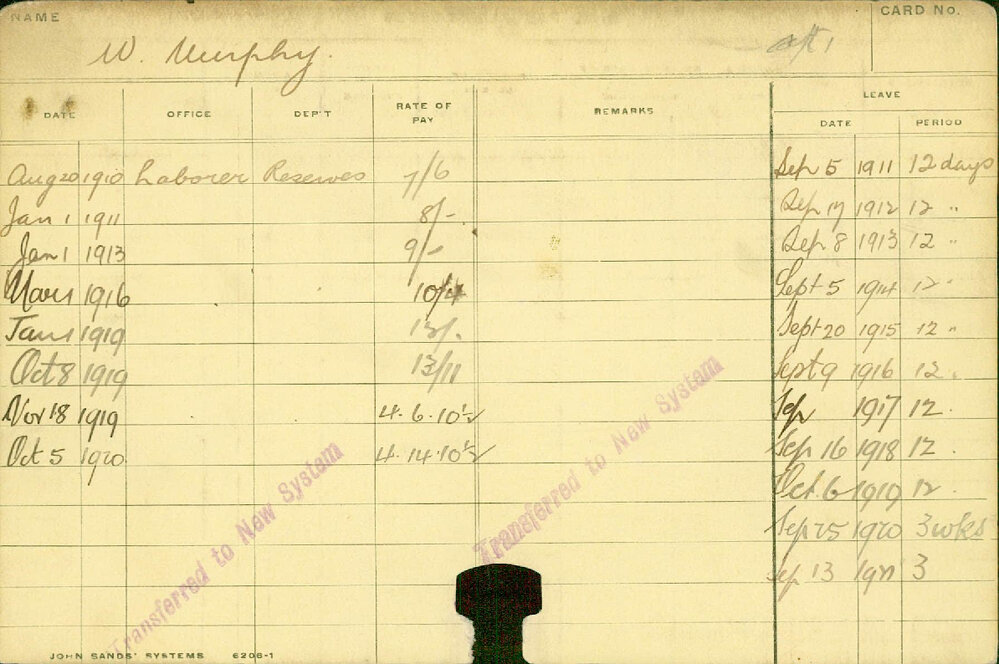 NAME
CARD No.
W. Murphy.
DATE OFFICE DEP'T RATE OF PAY REMARKS LEAVE
DATE PERIOD
Aug 20 1910 Laborer Reserves 7/6 Sep 5 1911 12 days
Jan 1 1911 8/-. Sep 17 1912 12 "
Jan 1 1913 9/- Sep 8 1913 12 "
Mar 1 1916 10/4 Sept 5 1914 12 "
Jan 1 1919 Sept 20 1915 12 "
Oct 8 1919 13/11 Sept 9 1916 12 .
Nov 18 1919 4.6.10½ Sep 1917 12 .
Oct 5 1920 4.14.10½ Sep 16 1918 12 .
Oct. 6 1919 12 .
Sep 25 1920 3 wks
Sep 13 1921 3
Transferred to New System
Transferred to New System
JOHN SANDS' SYSTEMS 6206-1